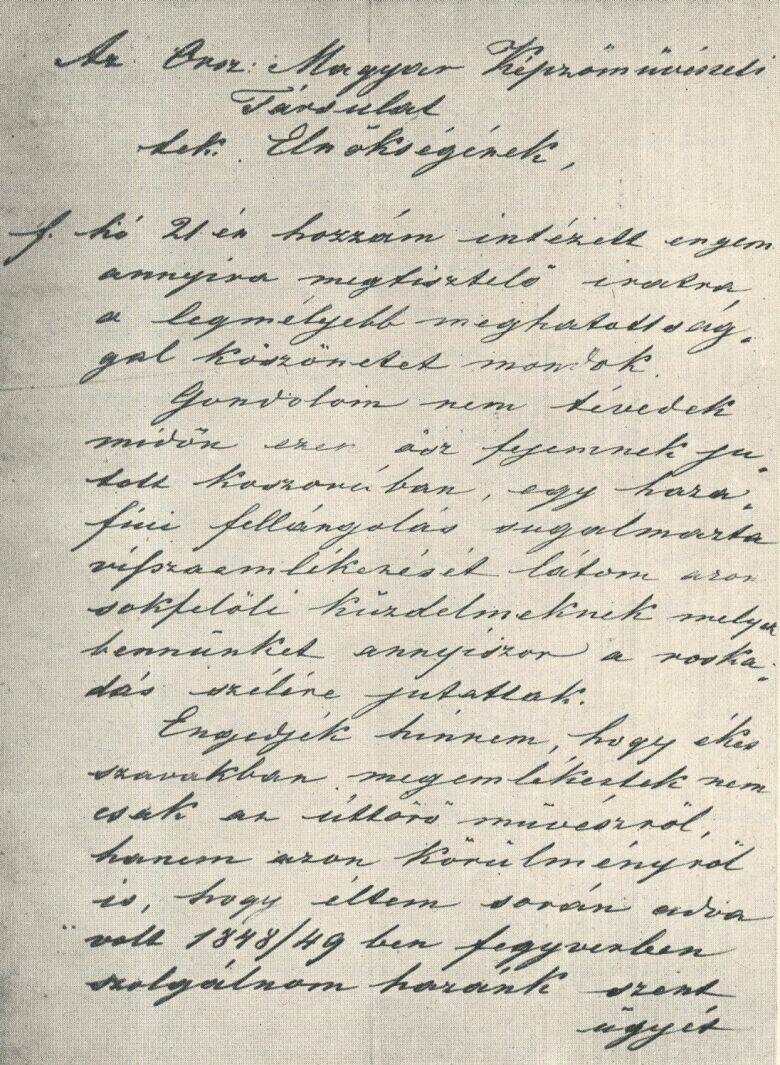 Az Orsz: Magyar Képzőművészeti
Társulat
tek. Elnökségének,
f. hó 21 én hozzám intézett engem
annyira megtisztelő iratra
a legmélyebb meghatottság„
gal köszönetet mondok.
Gondolom nem tévedek
midőn ezen ősz fejemnek ju„
tott koszorúban, egy haza„
fiui fellángolás sugalmazta
viszszaemlékezését látom azon
sokfelöli küzdelmeknek melyek
bennünket annyiszor a roska„
dás szélére jutattak.
Engedjék hinnem, hogy ékes
szavakban megemlékeztek nem
csak az úttörő művészről,
hanem azon körülményről
is, hogy éltem során adva
volt 1848/49 ben fegyverben
szolgálnom hazánk szent
ügyét